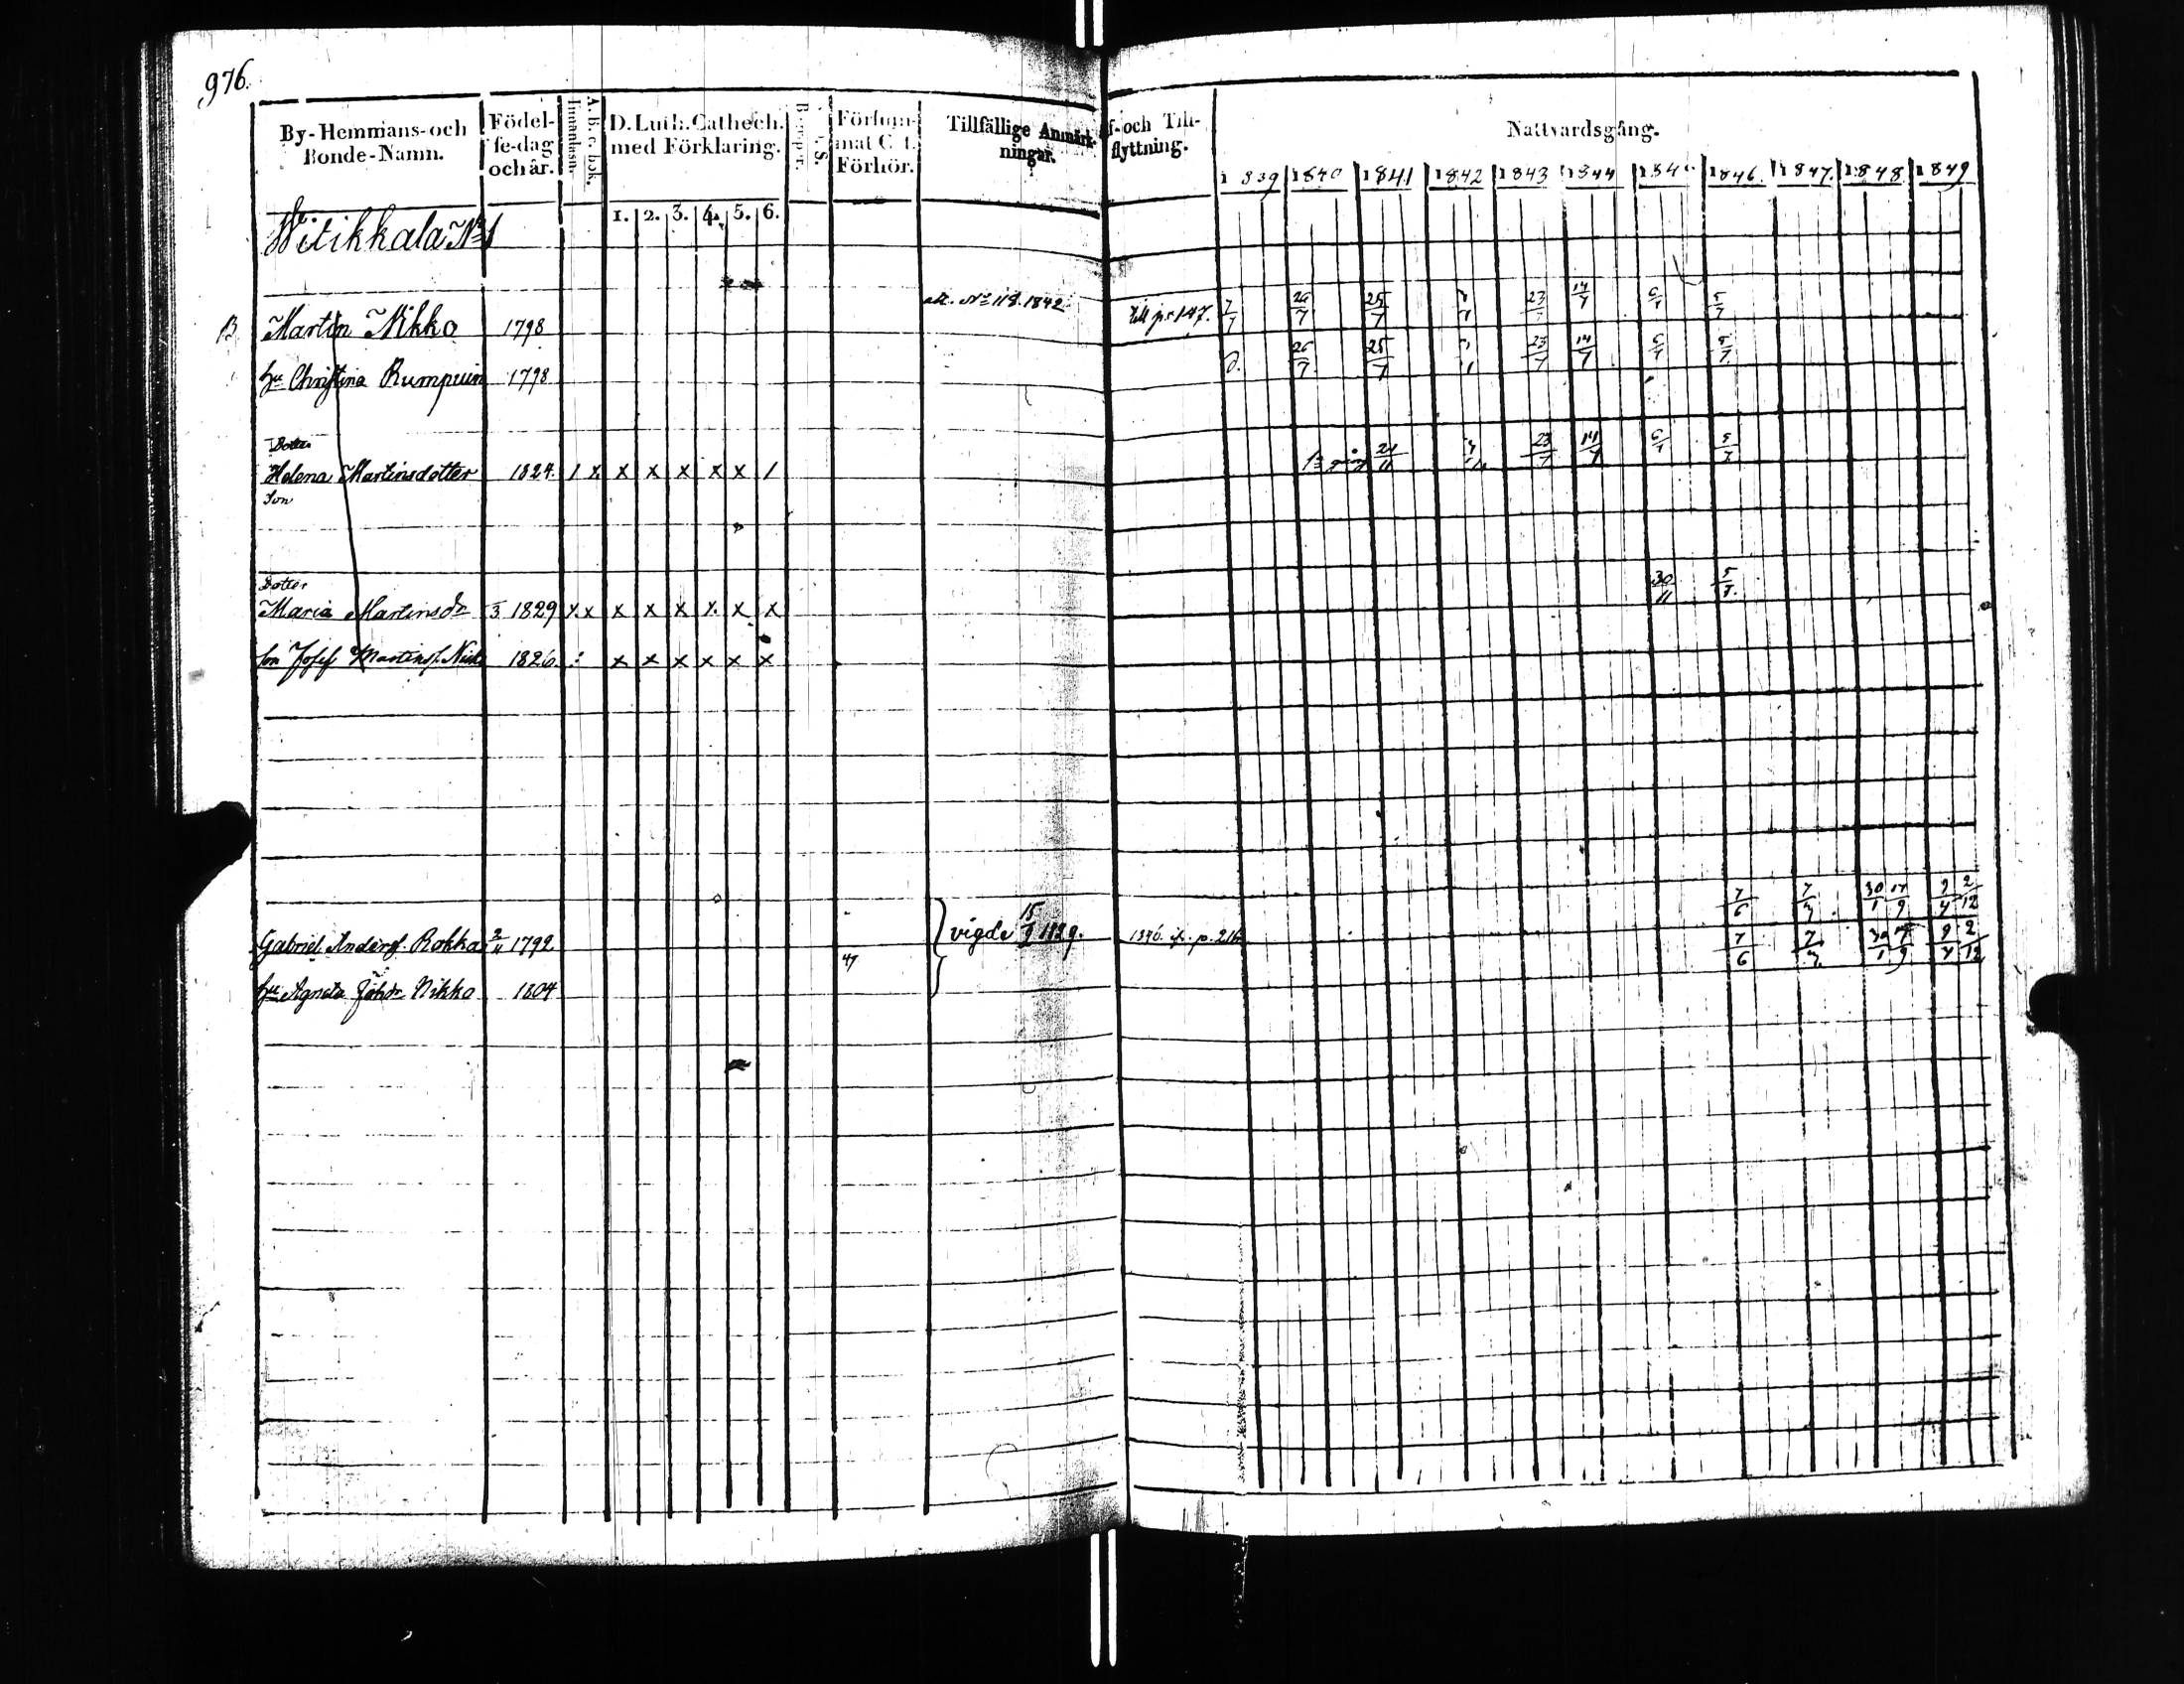 976.
By-Hemmans-och Bonde-Namn.
Födel-se-dag och år.
A. B. c. bok.
D. Luth. Cathech. med Förklaring.
Försum-mat C. t. Förhör.
Tillfällige Anmärk-ningar.
f- och Till-flyttning.
Nattvardsgång.
1839 1840 1841 1842 1843 1844 184 1846. 1847. 1848. 1849
1. 2. 3. 4. 5. 6.
Witikkala No 1
B. Martin Nikko 1798 att. No 118. 1842 till p. 147. 7/7 26/7 25/7 23/7 14/7 6/7 5/7
Hu Christina Rumpuin 1798 D. 26/7 25/7 23/7 14/7 6/7 5/7
Dotter
Helena Martinsdotter 1824. 1 x x x x x x 1 1a gång 21/11 23/7 14/7 6/7 5/7
Son
Dotter
Maria Martinsdr 1829 x x x x x x x x 30/11 5/7
Son Josef Martinss. 1826 x x x x x x
Gabriel Anderss. Rokka 2/11 1792 vigde 1829. 1846. p. 216 7/6 30/1 17/9 2/12
47
Hu Agneta Johdr Nikko 1804 7/6 30/1 2/12